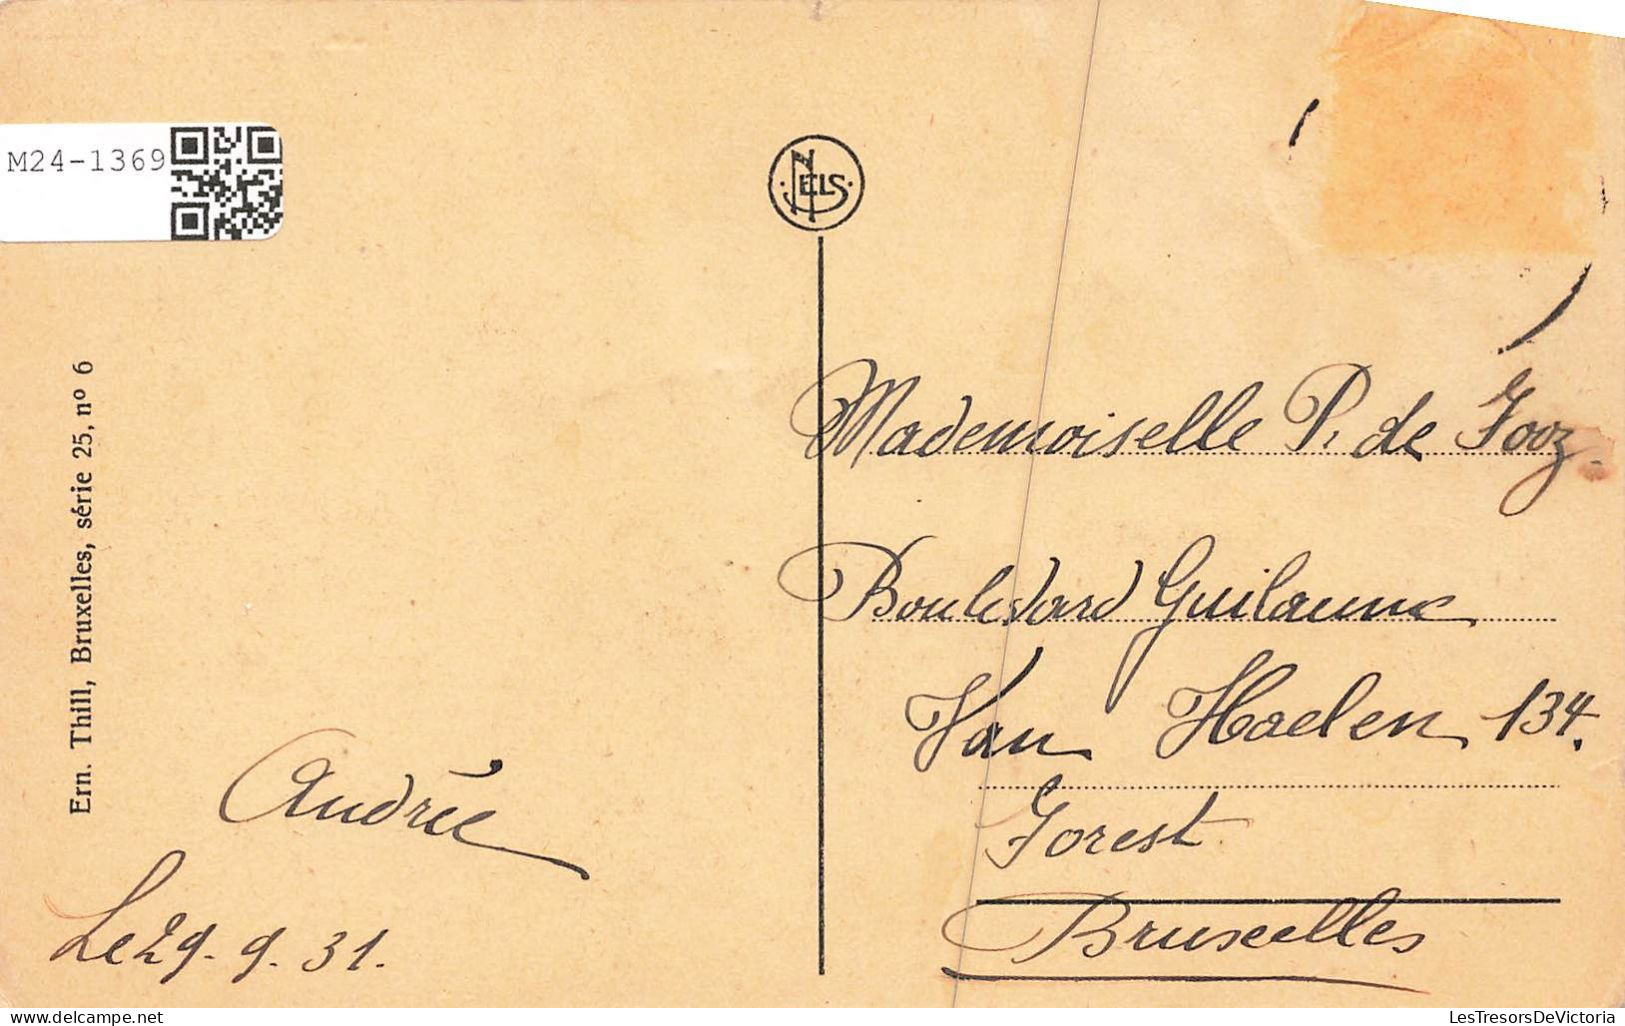 M24-1369
NELS
Ern. Thill, Bruxelles, série 25, nº 6
Mademoiselle P. de Fooz.
Boulevard Guilaume
Van Haelen 134.
Forest
Bruxelles
Andrée
Le 29. 9. 31.
delcampe.net
LesTresorsDeVictoria